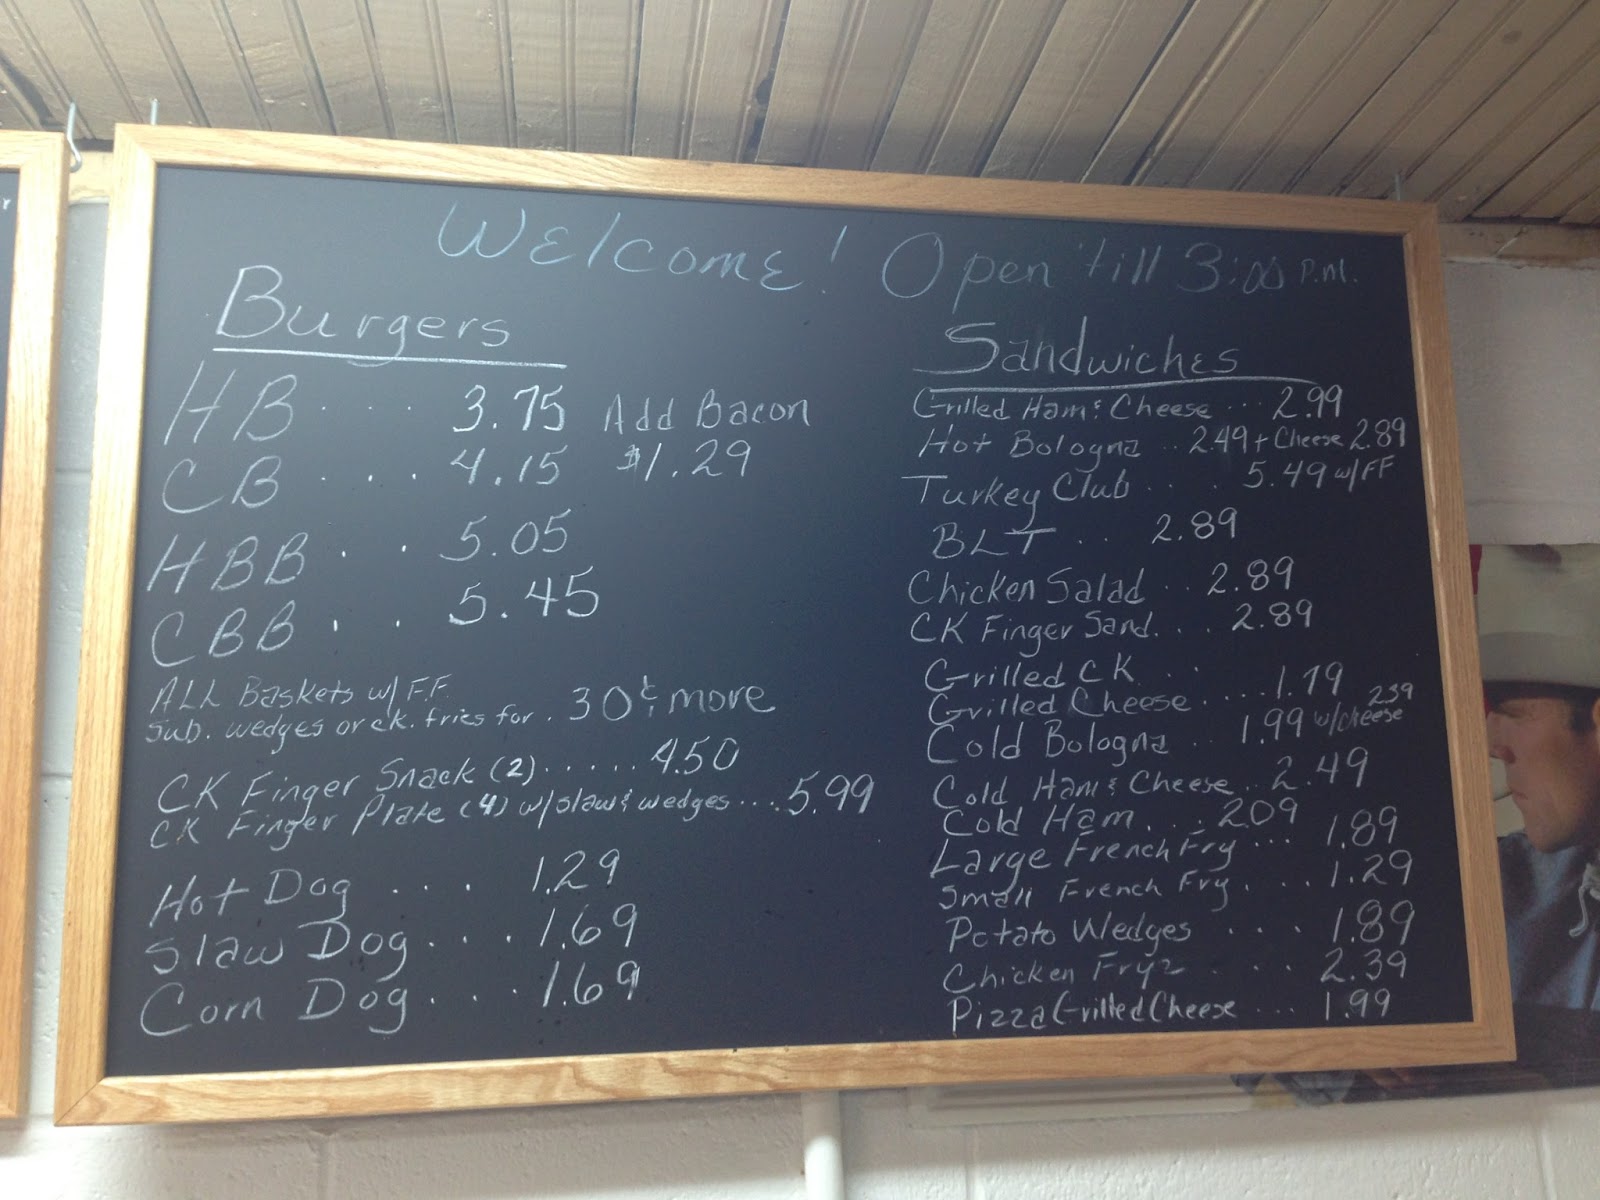 Welcome! Open 'till 3:00 P.M.
Burgers
HB .... 3.75 Add Bacon
$1.29
CB .... 4.15
HBB ... 5.05
CBB ... 5.45
ALL Baskets w/ F.F.
Sub. wedges or ck. fries for . 30¢ more
CK Finger Snack (2) ..... 4.50
CK Finger Plate (4) w/slaw & wedges .... 5.99
Hot Dog .... 1.29
Slaw Dog .... 1.69
Corn Dog .... 1.69
Sandwiches
Grilled Ham & Cheese ... 2.99
Hot Bologna .. 2.49 + Cheese 2.89
Turkey Club .... 5.49 w/FF
BLT ... 2.89
Chicken Salad .. 2.89
CK Finger Sand. ... 2.89
Grilled CK ..
Grilled Cheese .... 1.19
Cold Bologna .. 1.99 w/cheese 239
Cold Ham & Cheese .. 2.49
Cold Ham ... 209
Large French Fry ... 1.89
Small French Fry .... 1.29
Potato Wedges .... 1.89
Chicken Fryz .... 2.39
Pizza Grilled Cheese ... 1.99